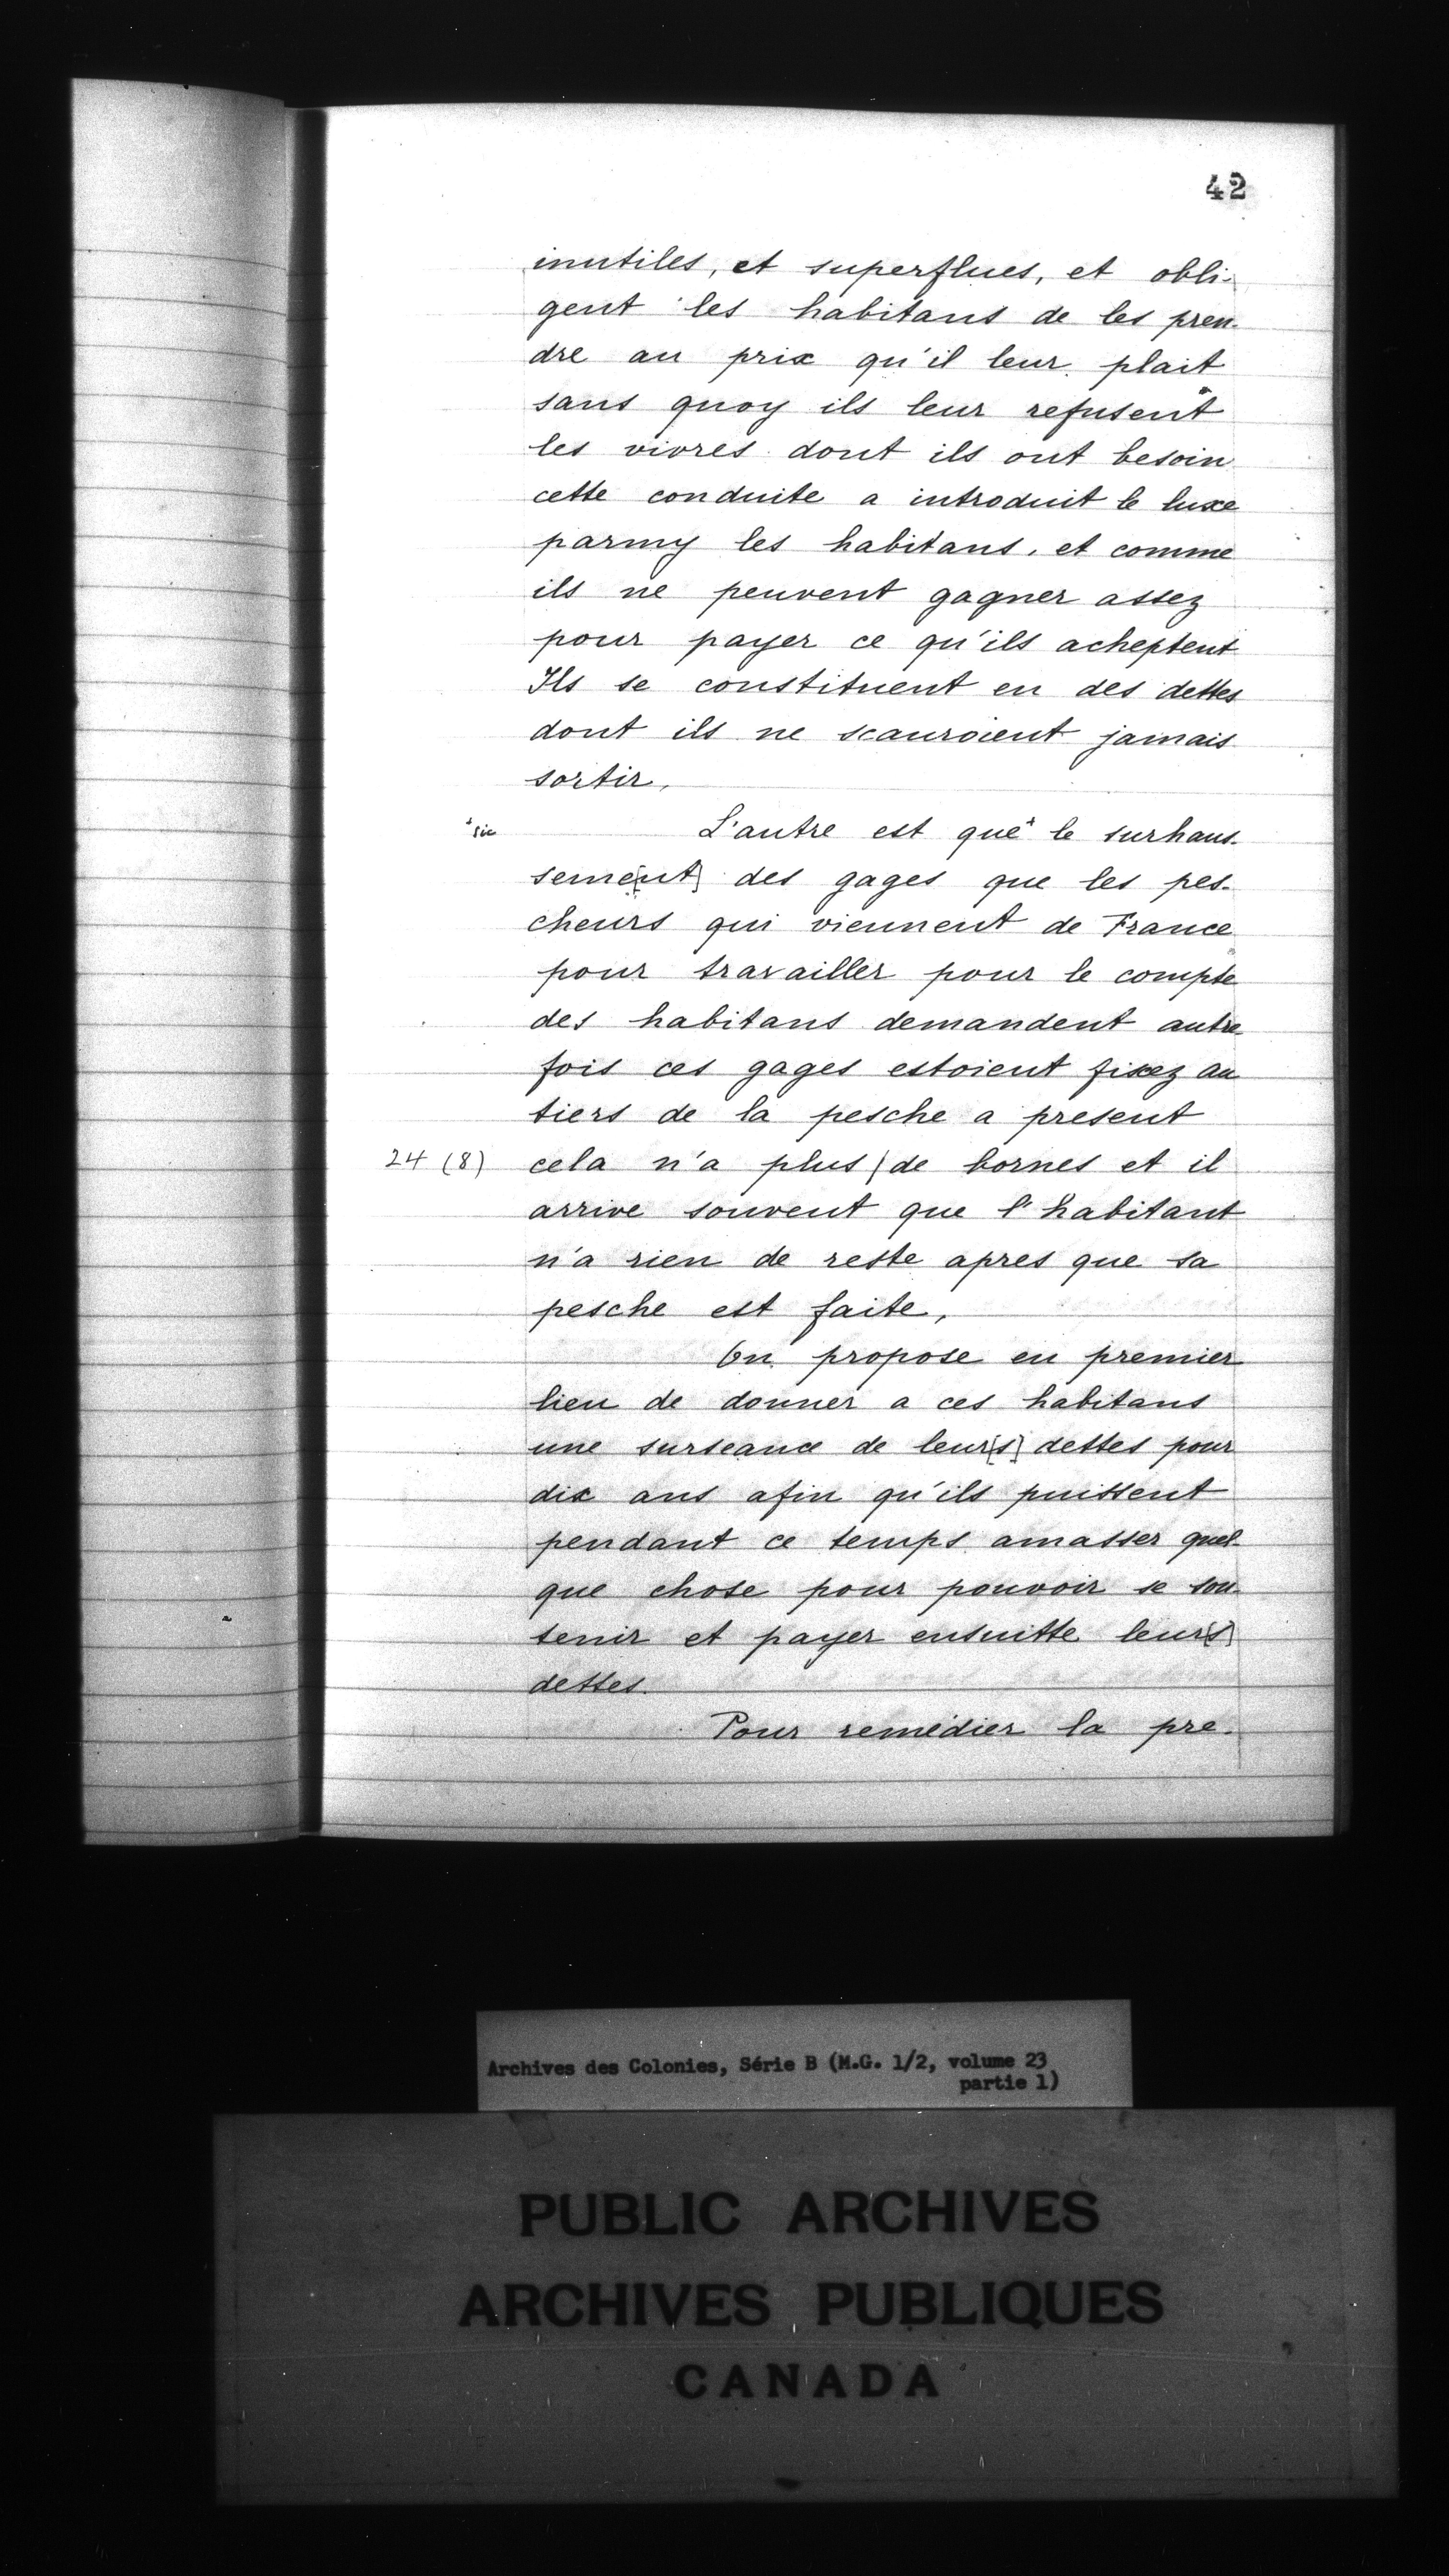 42
inutiles, et superflues, et obli-
gent les habitans de les pren-
dre au prix qu'il leur plait
sans quoy ils leur refusent
les vivres dont ils ont besoin
cette conduite a introduit le luxe
parmy les habitans, et comme
ils ne peuvent gagner assez
pour payer ce qu'ils acheptent
Ils se constituent en des dettes
dont ils ne scauroient jamais
sortir.
+sic L'autre est que+ le surhaus-
seme[nt] des gages que les pes-
cheurs qui viennent de France
pour travailler pour le compte
des habitans demandent autre
fois ces gages estoient fixez au
tiers de la pesche a present
24 (8) cela n'a plus | de bornes et il
arrive souvent que l'habitant
n'a rien de reste apres que sa
pesche est faite,
On propose en premier
lieu de donner a ces habitans
une surseance de leur[s] dettes pour
dix ans afin qu'ils puissent
pendant ce temps amasser quel-
que chose pour pouvoir se sou-
tenir et payer ensuitte leur[s]
dettes.
Pour remédier la pre-
Archives des Colonies, Série B (M.G. 1/2, volume 23
partie 1)
PUBLIC ARCHIVES
ARCHIVES PUBLIQUES
CANADA